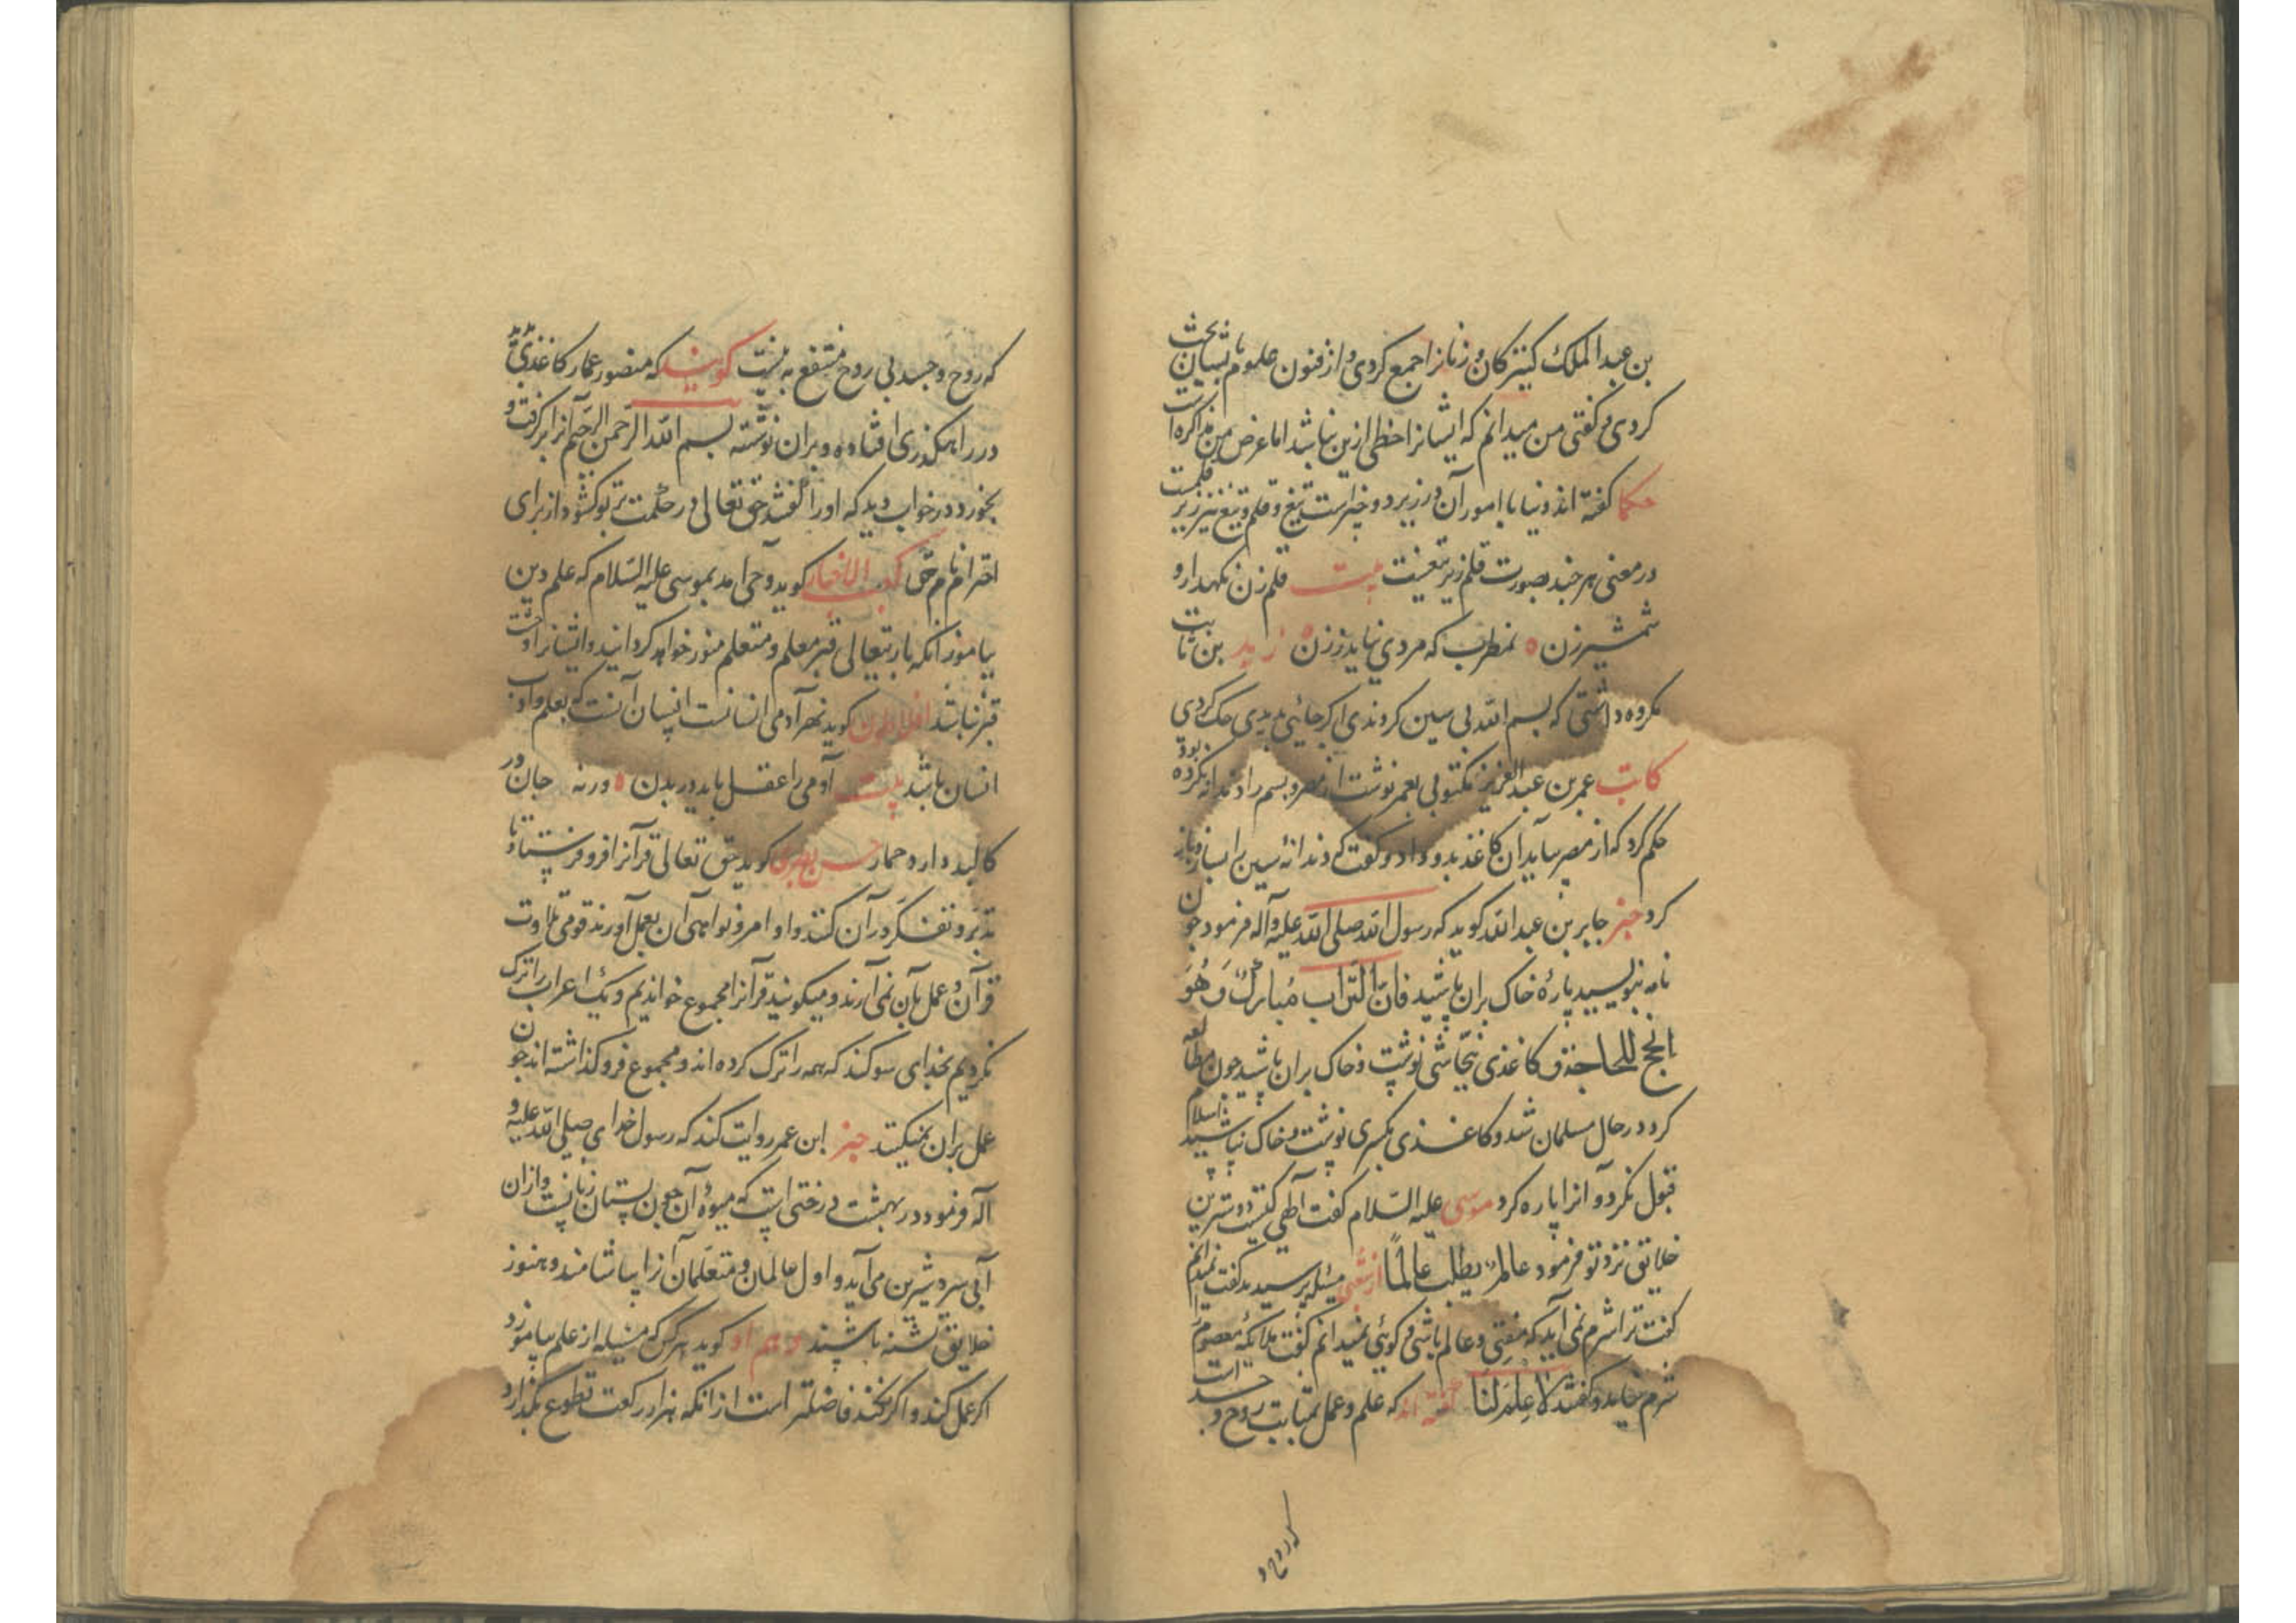 بن عبد الملک کنیزکان و زنانرا جمع کردی و از فنون علوم با ایشان بحث
کردی و گفتی من میدانم که ایشانرا حظی ازین نباشد اما غرض من مذاکره است
حکما گفته اند دنیا با امور آن در زیر دو چیز است تیغ و قلم و تیغ نیز زیر قلمست
در معنی هر چند بصورت قلم زیر تیغست بیت قلم زن نکهدار و
شمشیر زن ه نه مطرب که مردی نیاید ز زن ه زید بن ثابت
مکروه داشتی که بسم الله بی سین کردندی اکر جائی بدیدی حک کردی
کاتب عمر بن عبد العزیز مکتوبی بعمر نوشت از مصر و بسم را دندانه نکرده بود
حکم کرد که از مصر بیاید آن کاغذ بدو داد و گفت که دندانهٔ سین را بساز و باز
کرد خبر جابر بن عبد الله کوید که رسول الله صلی الله علیه و آله فرمود چون
نامه بنویسید پارهٔ خاک بران پاشید فان التراب مبارک و هو
انجح للحاجة و کاغذی بنجاشی نوشت و خاک بران پاشید چون مطالعه
کرد در حال مسلمان شد و کاغذی بکسری نوشت و خاک نپاشید اسلام
قبول نکرد و آنرا پاره کرد موسی علیه السلام گفت الهی کیست دوسترین
خلایق نزد تو فرمود عالم یطلب عالمًا از شعبی مسئله پرسیدند گفت نمیدانم
گفت ترا شرم نمی آید که مفتی و عالم باشی و کوئی نمیدانم گفت ملائکه معصوم را
شرم نیامد و گفتند لا علم لنا گفته اند که علم و عمل بمثابت روح و جسد است
که روح و
که روح و جسد بی روح منتفع به نیست کویند که منصور عمار کاغذی دید
در راهکذری افتاده و بران نوشته بسم الله الرحمن الرحیم آنرا برکرفت و
بخورد در خواب دید که او را گفتند حق تعالی در حکمت بر تو کشود از برای
احترام نام حق کعب الاخبار کوید وحی آمد بموسی علیه السلام که علم دین
بیاموز آنکه باریتعالی قبر معلم و متعلم منور خواهد کردانید و ایشانرا وحشت
قبر نباشد افلاطون کوید نه هر آدمی انسانست انسان آنست که بعلم و ادب
انسان باشد بیت آدمی را عقل باید در بدن ه ورنه جان در
کالبد دارد حمار حسن بصری کوید حق تعالی قرآنرا فرو فرستاد تا
تدبر و تفکر در آن کنند و اوامر و نواهی آن بعمل آورند قومی تلاوت
قرآن و عمل بآن نمی آرند و میکویند قرآنرا مجموع خواندیم و یک اعراب را ترک
نکردیم بخدای سوکند که همه را ترک کرده اند و مجموع فرو کذاشته اند چون
عمل بران نمیکنند خبر ابن عمر روایت کند که رسول خدای صلی الله علیه و
آله فرمود در بهشت درختی است که میوهٔ آن چون پستان زنانست و ازان
آبی سرد شیرین می آید و اول عالمان و متعلمان آنرا بیاشامند و هنوز
خلایق تشنه باشند و هم او کوید هر کس که مسئله از علم بیاموزد
اکر عمل کند و اکر نکند فاضلتر است از آنکه هزار رکعت تطوع بکذارد